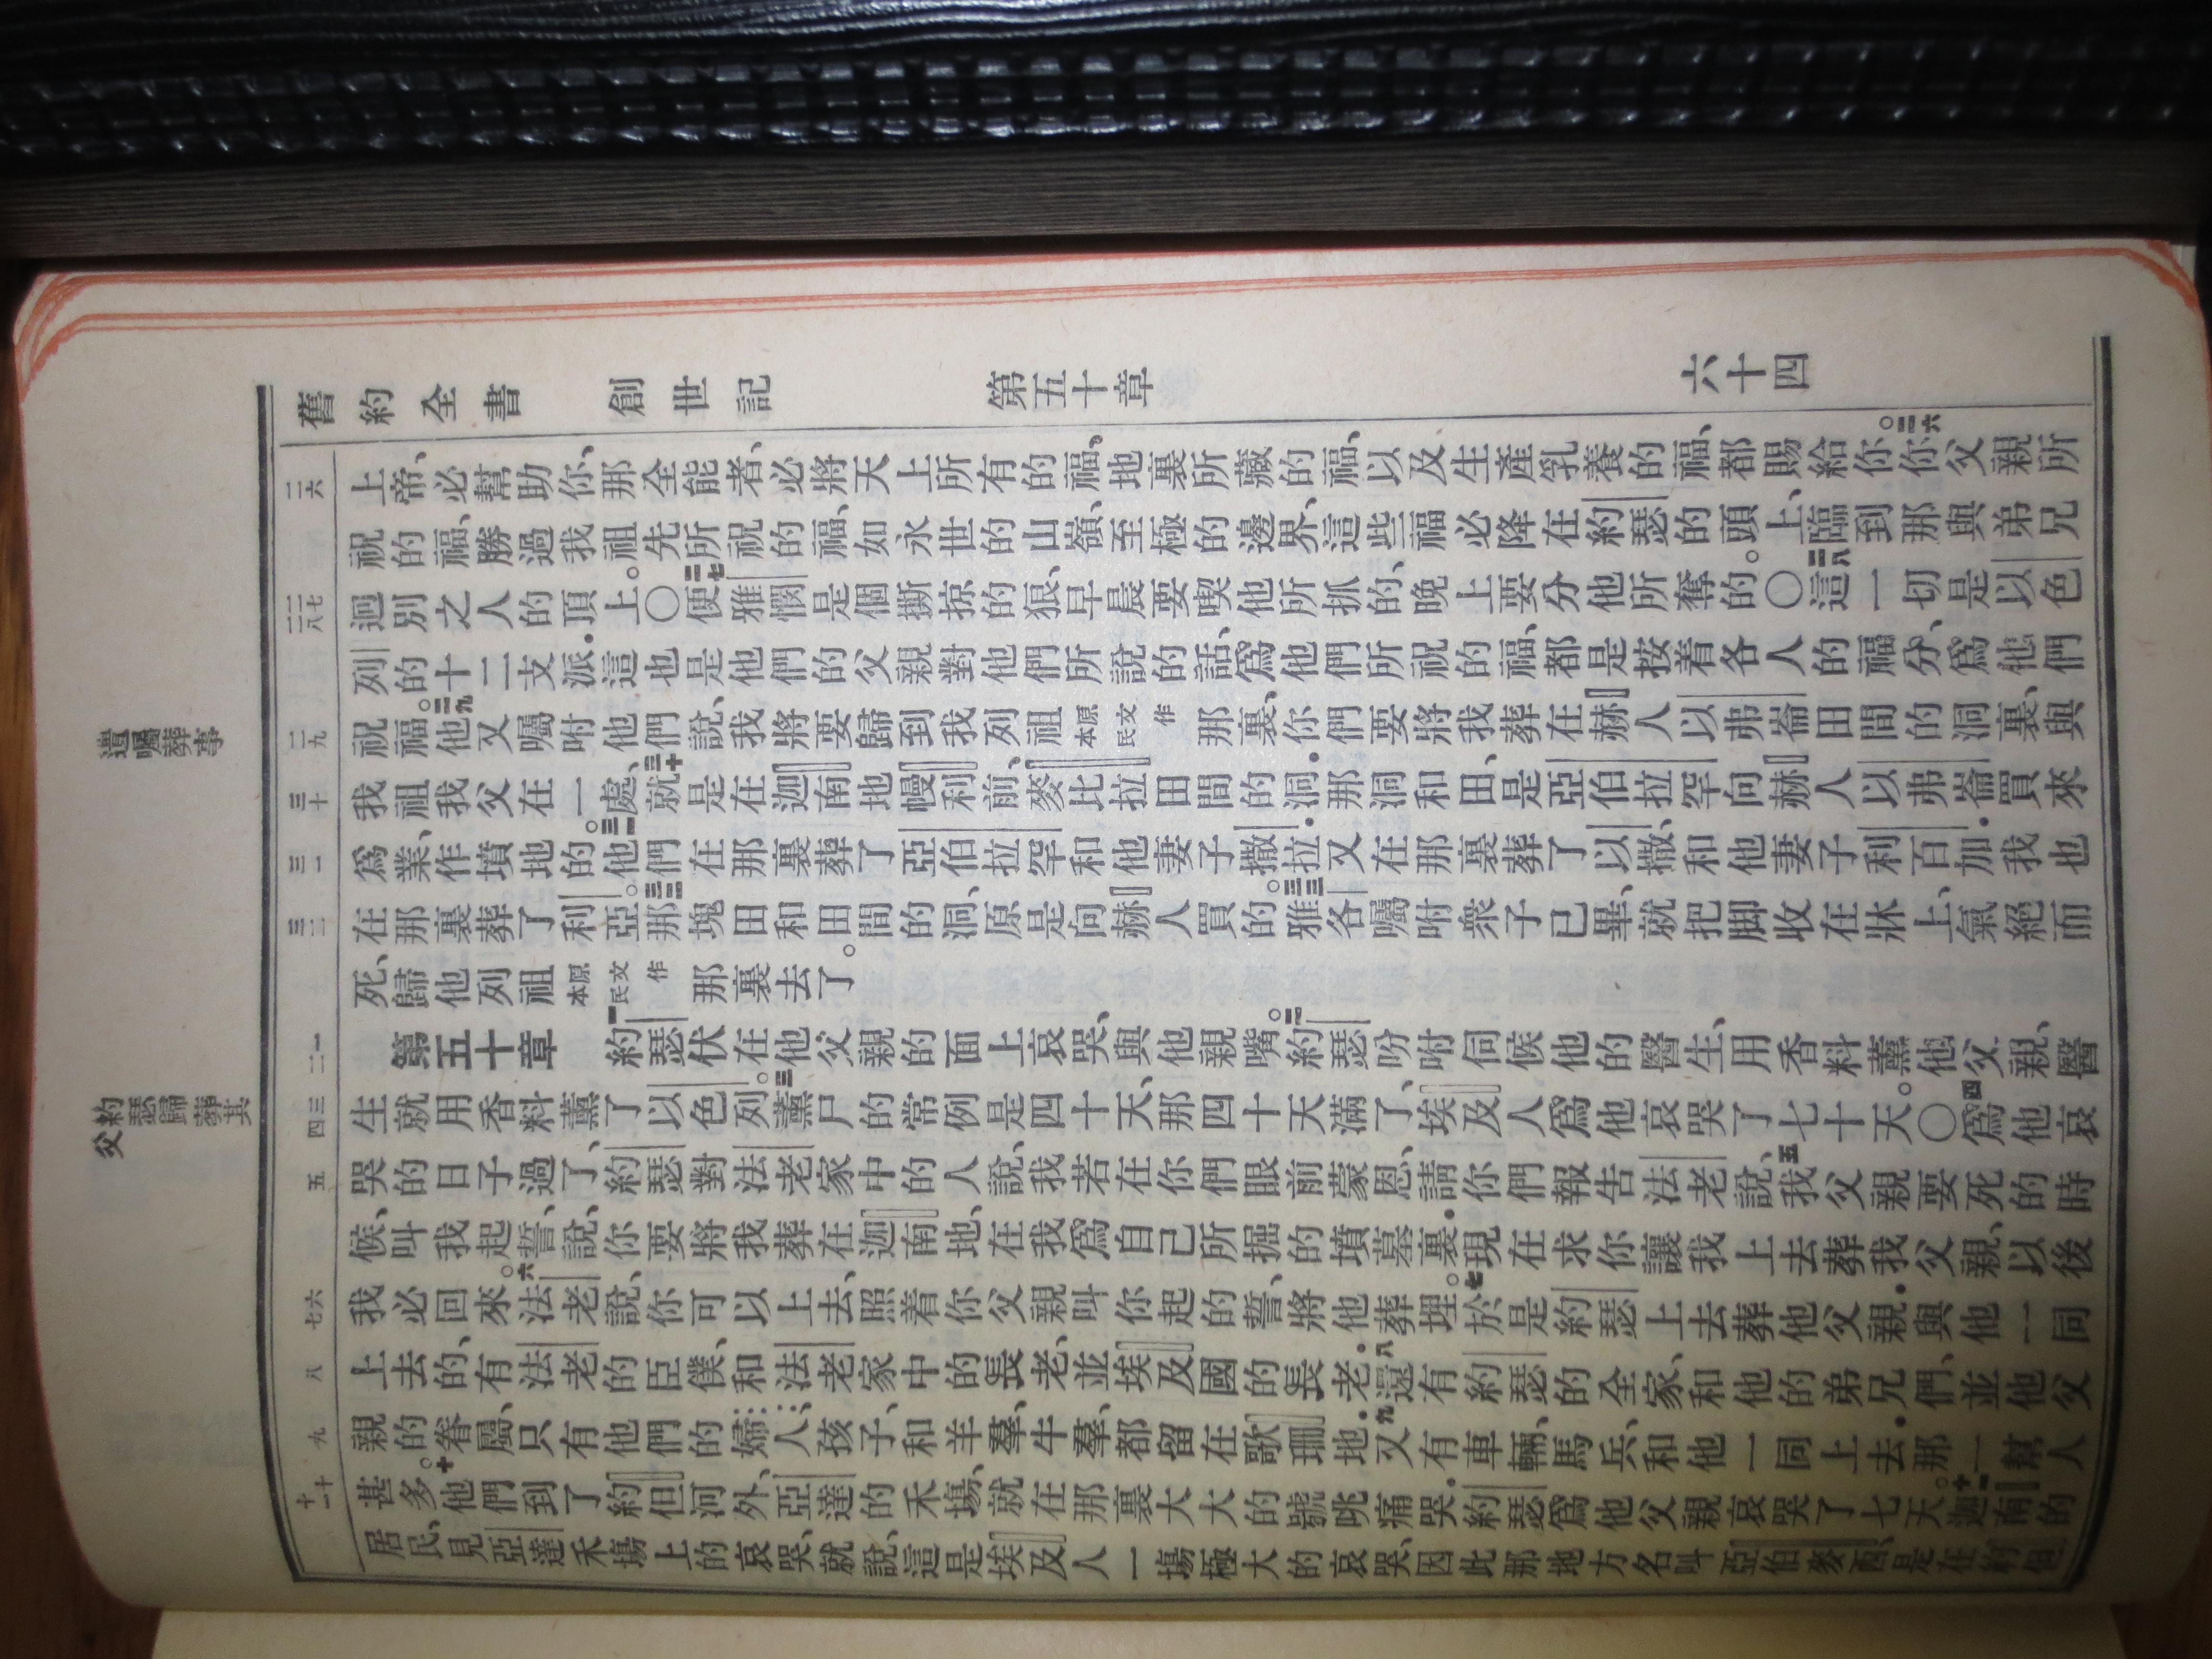 舊約全書 創世記 第五十章 六十四
上帝、必幫助你、那全能者、必將天上所有的福、地裏所藏的福、以及生產乳養的福、都賜給你。二六你父親所
祝的福、勝過我祖先所祝的福、如永世的山嶺、至極的邊界、這些福必降在約瑟的頭上、臨到那與弟兄
迥別之人的頂上。〇二七便雅憫是個撕掠的狼、早晨要喫他所抓的、晚上要分他所奪的。〇二八這一切是以色
列的十二支派．這也是他們的父親對他們所說的話、爲他們所祝的福、都是按着各人的福分、爲他們
祝福。二九他又囑咐他們說、我將要歸到我列祖原文作本民那裏、你們要將我葬在赫人以弗崙田間的洞裏、與
我祖我父在一處、三十就是在迦南地幔利前、麥比拉田間的洞．那洞和田、是亞伯拉罕向赫人以弗崙買來
爲業、作墳地的。三一他們在那裏葬了亞伯拉罕和他妻子撒拉．又在那裏葬了以撒、和他妻子利百加．我也
在那裏葬了利亞。三二那塊田和田間的洞、原是向赫人買的。三三雅各囑咐衆子已畢、就把脚收在牀上、氣絕而
死、歸他列祖原文作本民那裏去了。
第五十章 一約瑟伏在他父親的面上哀哭、與他親嘴。二約瑟吩咐伺候他的醫生、用香料薰他父親、醫
生就用香料薰了以色列。三薰尸的常例是四十天、那四十天滿了、埃及人爲他哀哭了七十天。〇四爲他哀
哭的日子過了、約瑟對法老家中的人說、我若在你們眼前蒙恩、請你們報告法老說、五我父親要死的時
候、叫我起誓、說、你要將我葬在迦南地、在我爲自己所掘的墳墓裏．現在求你讓我上去葬我父親、以後
我必回來。六法老說、你可以上去、照着你父親叫你起的誓、將他葬埋。七於是約瑟上去葬他父親．與他一同
上去的、有法老的臣僕、和法老家中的長老、並埃及國的長老．八還有約瑟的全家、和他的弟兄們、並他父
親的眷屬、只有他們的婦人、孩子、和羊羣、牛羣、都留在歌珊地．九又有車輛、馬兵、和他一同上去．那一幫人
甚多。十他們到了約但河外、亞達的禾場、就在那裏大大的號咷痛哭．約瑟爲他父親哀哭了七天。十一迦南的
居民、見亞達禾場上的哀哭、就說、這是埃及人一場極大的哀哭、因此那地方名叫亞伯麥西、是在約但
二六
二七
二八
二九
三十
三一
三二
一
二
三
四
五
六
七
八
九
十
十一
遺囑葬事
約瑟歸葬其
父